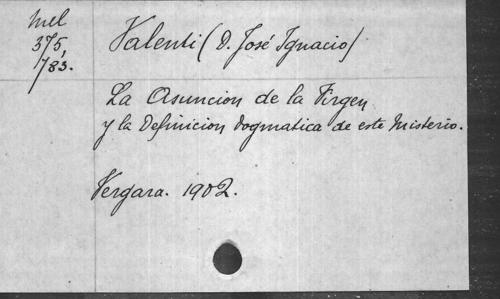 Mel
375,
783.
Valenti (D. José Ignacio)
La Asuncion de la Virgen
y la Definicion dogmatica de este Misterio.
Vergara. 1902.